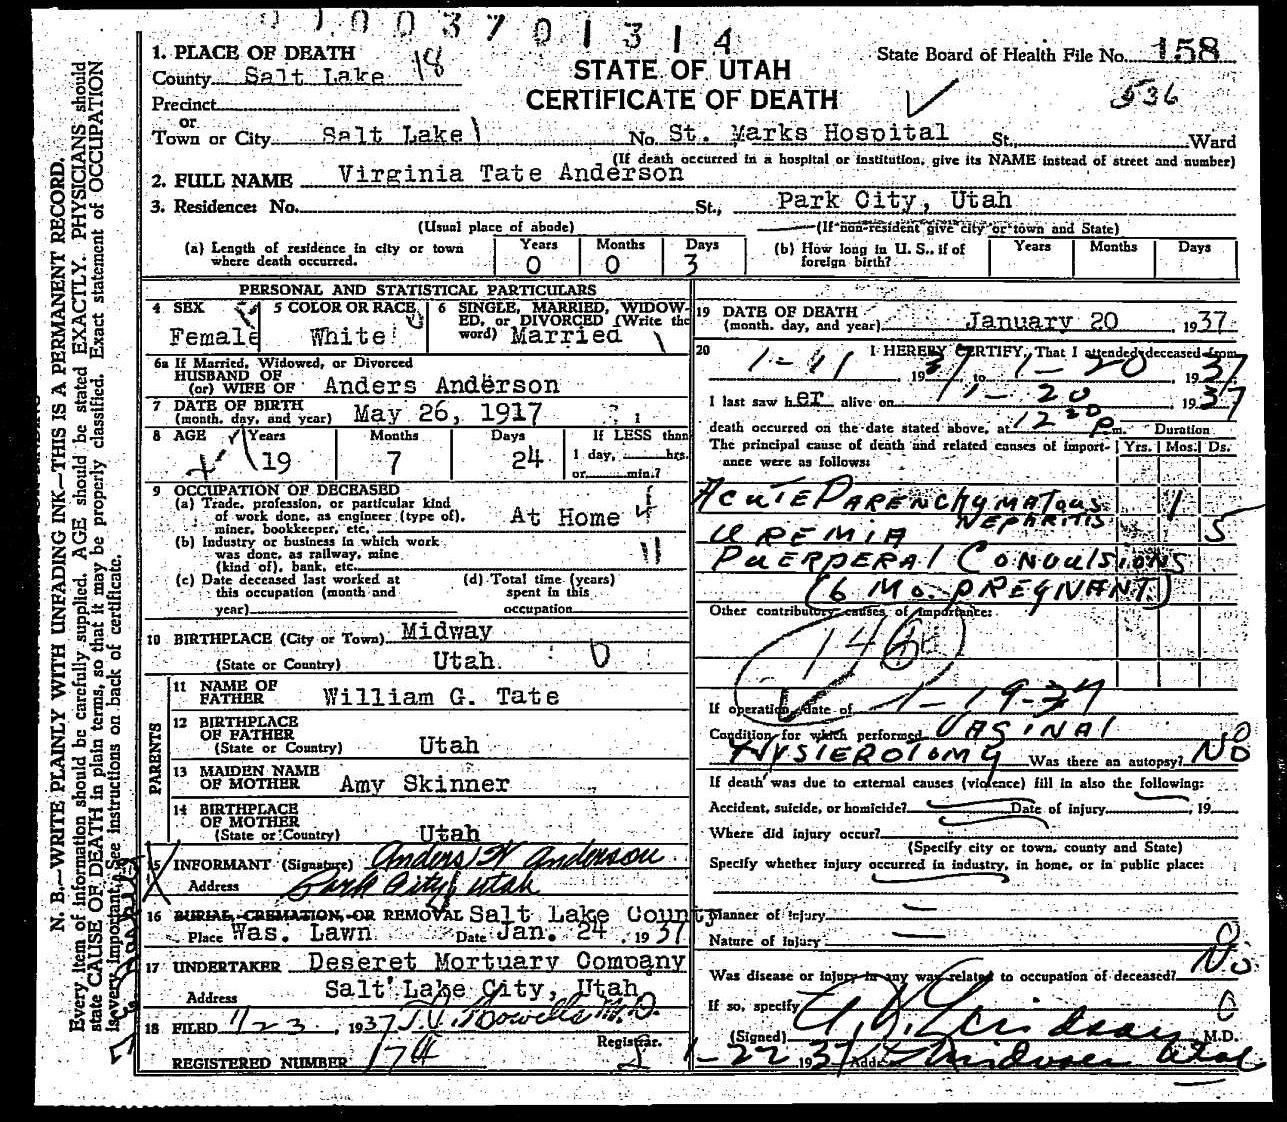 0 1 0 0 3 7 0 1 3 1 4
1. PLACE OF DEATH
County Salt Lake 18
Precinct
or
Town or City Salt Lake 1
STATE OF UTAH
CERTIFICATE OF DEATH
State Board of Health File No. 158
536
No. St. Marks Hospital St., Ward
(If death occurred in a hospital or institution, give its NAME instead of street and number)
2. FULL NAME Virginia Tate Anderson
3. Residence: No. St., Park City, Utah
(Usual place of abode) (If non-resident give city or town and State)
(a) Length of residence in city or town where death occurred. Years 0 Months 0 Days 3
(b) How long in U. S., if of foreign birth? Years Months Days
PERSONAL AND STATISTICAL PARTICULARS
4 SEX Female
5 COLOR OR RACE White
6 SINGLE, MARRIED, WIDOWED, or DIVORCED (Write the word) Married
6a If Married, Widowed, or Divorced
HUSBAND OF
(or) WIFE OF Anders Anderson
7 DATE OF BIRTH
(month, day, and year) May 26, 1917
8 AGE Years 19 Months 7 Days 24 If LESS than 1 day, hrs. or min.?
9 OCCUPATION OF DECEASED
(a) Trade, profession, or particular kind
of work done, as engineer (type of),
miner, bookkeeper, etc. At Home
(b) Industry or business in which work
was done, as railway, mine
(kind of), bank, etc. 11
(c) Date deceased last worked at
this occupation (month and
year)
(d) Total time (years)
spent in this
occupation
10 BIRTHPLACE (City or Town) Midway
(State or Country) Utah
PARENTS
11 NAME OF
FATHER William G. Tate
12 BIRTHPLACE
OF FATHER
(State or Country) Utah
13 MAIDEN NAME
OF MOTHER Amy Skinner
14 BIRTHPLACE
OF MOTHER
(State or Country) Utah
15 INFORMANT (Signature) Anders H Anderson
Address Park City, Utah
16 BURIAL, CREMATION, OR REMOVAL Salt Lake County
Place Was. Lawn Date Jan. 24, 1937
17 UNDERTAKER Deseret Mortuary Company
Address Salt Lake City, Utah
18 FILED 1/23, 1937 M.D.
Registrar.
REGISTERED NUMBER 174
19 DATE OF DEATH
(month, day, and year) January 20 1937
20 I HEREBY CERTIFY, That I attended deceased from
1-11, 1937, to 1-20, 1937
I last saw her alive on 1-20, 1937
death occurred on the date stated above, at 12 20 P m. Duration
The principal cause of death and related causes of importance were as follows: Yrs. Mos. Ds.
ACUTE PARENCHYMATOUS 1
NEPHRITIS
UREMIA 5
PUERPERAL CONVULSIONS
(6 MO. PREGNANT)
Other contributory causes of importance:
146
If operation, date of 1-19-37
Condition for which performed VAGINAL
HYSTEROTOMY Was there an autopsy? NO
If death was due to external causes (violence) fill in also the following:
Accident, suicide, or homicide? Date of injury, 19
Where did injury occur?
(Specify city or town, county and State)
Specify whether injury occurred in industry, in home, or in public place:
Manner of injury
Nature of injury
Was disease or injury in any way related to occupation of deceased? No
If so, specify
(Signed) M.D.
1-22 1937 Address
N. B.—WRITE PLAINLY WITH UNFADING INK—THIS IS A PERMANENT RECORD.
Every item of information should be carefully supplied. AGE should be stated EXACTLY. PHYSICIANS should
state CAUSE OF DEATH in plain terms, so that it may be properly classified. Exact statement of OCCUPATION
is very important. See instructions on back of certificate.